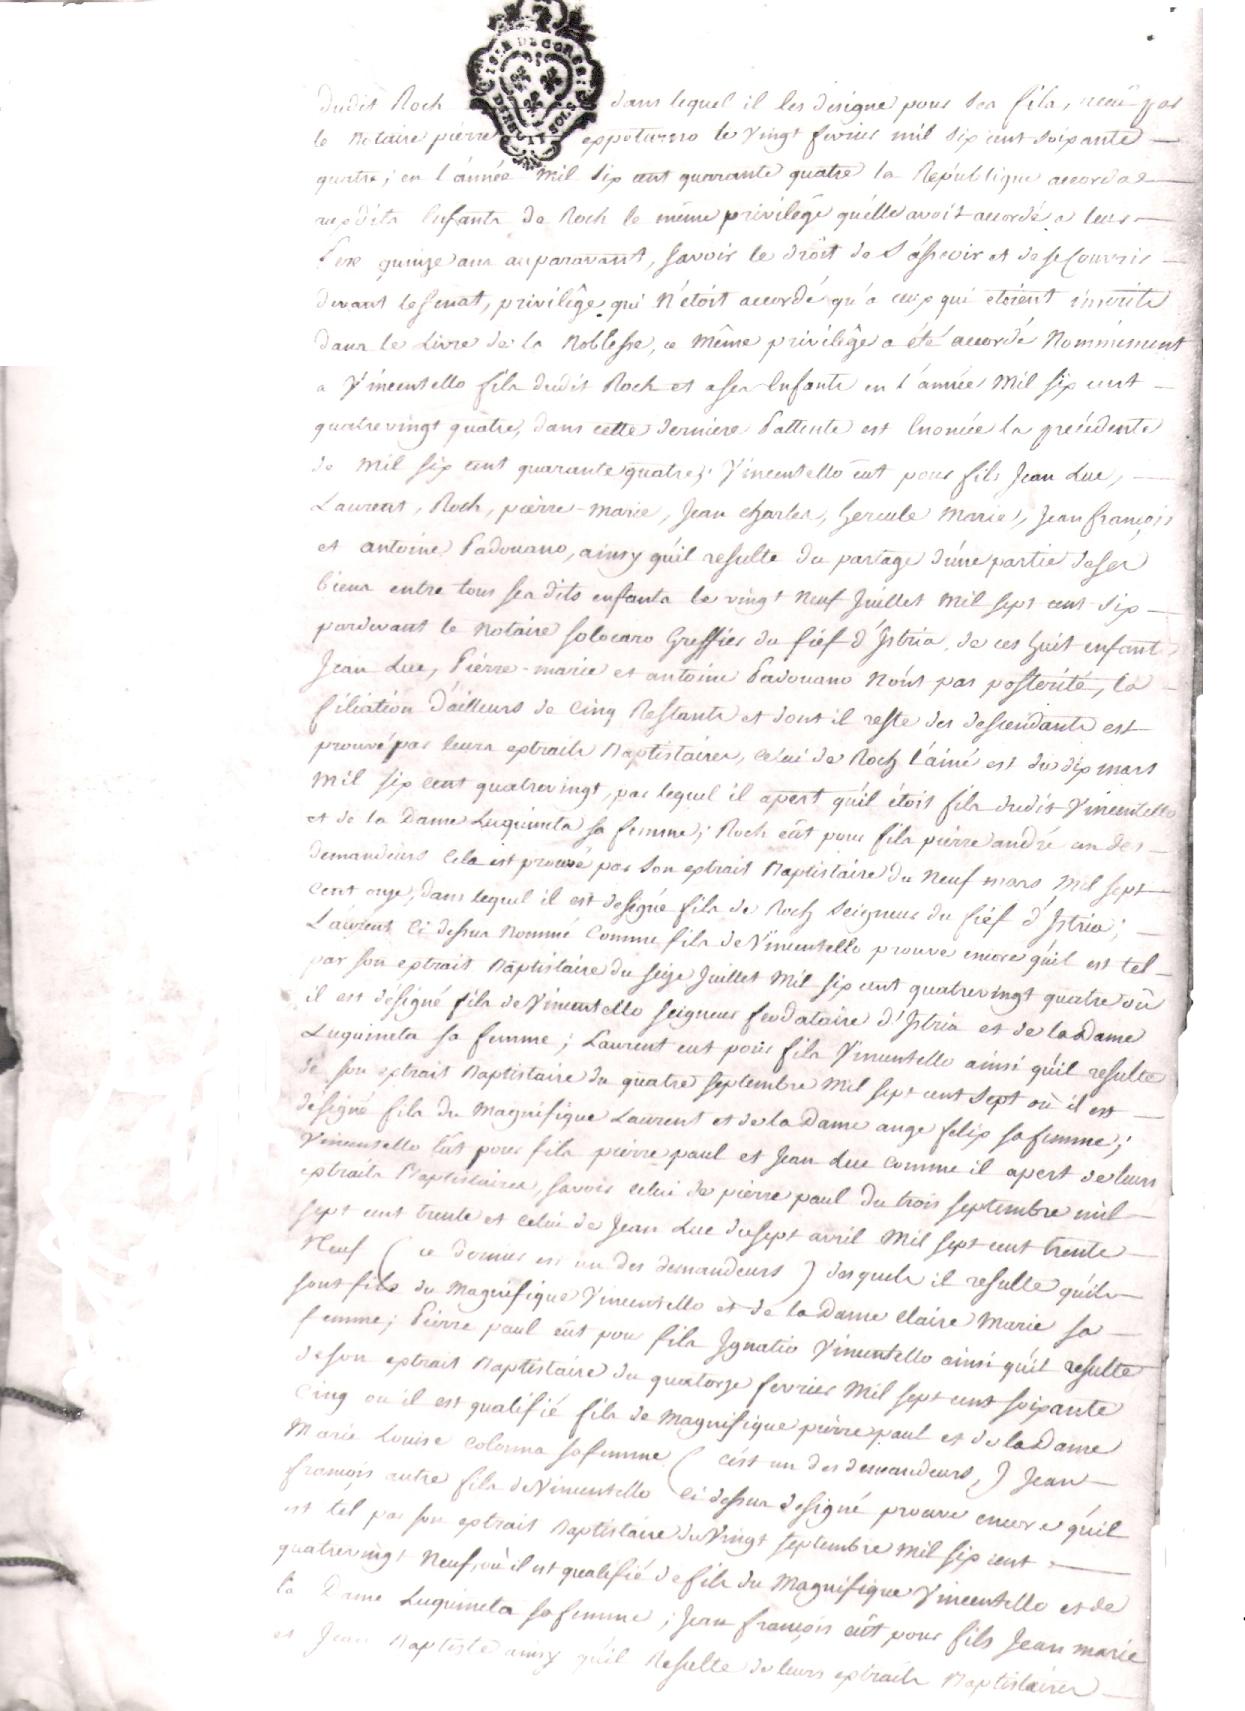 ISLE DE CORSE
DEMI SOLS
dudit Roch dans lequel il les désigne pour ses fils, recû par
le Notaire pierre eppoturno le Vingt fevrier mil six cent soixante
quatre; en l'année Mil six cent quarante quatre la République accorda
auxdits Enfants de Roch le même privilége qu'elle avoit accordé a leur
Pere quinze ans auparavant, savoir le droit de S'asseoir et de se Couvrir
devant le Senat, privilêge qui N'étoit accordé qu'a ceux qui etoient inscrits
dans le Livre de la Noblesse, ce même privilêge a été accordé Nommément
a Vincentello fils dudit Roch et a ses Enfants en l'année Mil six cent
quatrevingt quatre, dans cette derniere Pattente est Enoncée la précédente
de Mil six cent quarante quatre; Vincentello eut pour fils Jean Luc,
Laurent, Roch, pierre-marie, Jean Charles, hercule Marie, Jean françois
et antoine Padouano, ainsy qu'il resulte du partage d'une partie de ses
biens entre tous ses dits enfants le vingt Neuf Juillet Mil sept cent six
pardevant le Notaire Solocaro Greffier du fief d'Istria, de ces huit enfants
Jean Luc, Pierre-marie et antoine Padouano N'ont pas posterité, la
filiation d'ailleurs de Cinq Restants et dont il reste des descendants est
prouvé par leurs extraits Baptistaires, celui de Roch l'ainé est du dix mars
Mil six Cent quatrevingt, par lequel il apert qu'il étoit fils dudit Vincentello
et de la Dame Luquineta sa femme; Roch eût pour fils pierre andré un des
demandeurs Cela est prouvé par son extrait Baptistaire du Neuf mars Mil sept
Cent onze, dans lequel il est designé fils de Roch Seigneur du fief d'Istria;
Laurent Ci dessus Nommé Comme fils de Vincentello prouve encore qu'il est tel
par son extrait Baptistaire du seize Juillet Mil six cent quatrevingt quatre où
il est désigné fils de Vincentello seigneur feodataire d'Istria et de la Dame
Luquineta sa femme; Laurent eut pour fils Vincentello ainsi qu'il resulte
de son extrait Baptistaire du quatre septembre Mil sept cent sept où il est
designé fils du Magnifique Laurent et de la Dame ange felix sa femme;
Vincentello Eût pour fils pierre paul et Jean Luc Comme il apert de leurs
extraits Baptistaires, savoir celui de pierre paul du trois septembre mil
sept cent trente et celui de Jean Luc du sept avril Mil sept cent trente
Neuf (ce dernier est un des demandeurs) desquels il resulte qu'ils
sont fils du Magnifique Vincentello et de la Dame Claire Marie sa
femme; Pierre paul eût pour fils Ignatio Vincentello ainsi qu'il resulte
de son extrait Baptistaire du quatorze fevrier Mil sept cent soixante
Cinq ou il est qualifié fils de Magnifique pierre paul et de la Dame
Marie Louise Colonna sa femme (C'est un des demandeurs,) Jean
françois autre fils de Vincentello Ci dessus designé prouve encore qu'il
est tel par son extrait Baptistaire du Vingt septembre Mil six cent
quatrevingt Neuf, où il est qualifié de fils du Magnifique Vincentello et de
la Dame Luquineta sa femme; Jean françois eût pour fils Jean marie
et Jean Baptiste ainsy qu'il Resulte de leurs extraits Baptistaires